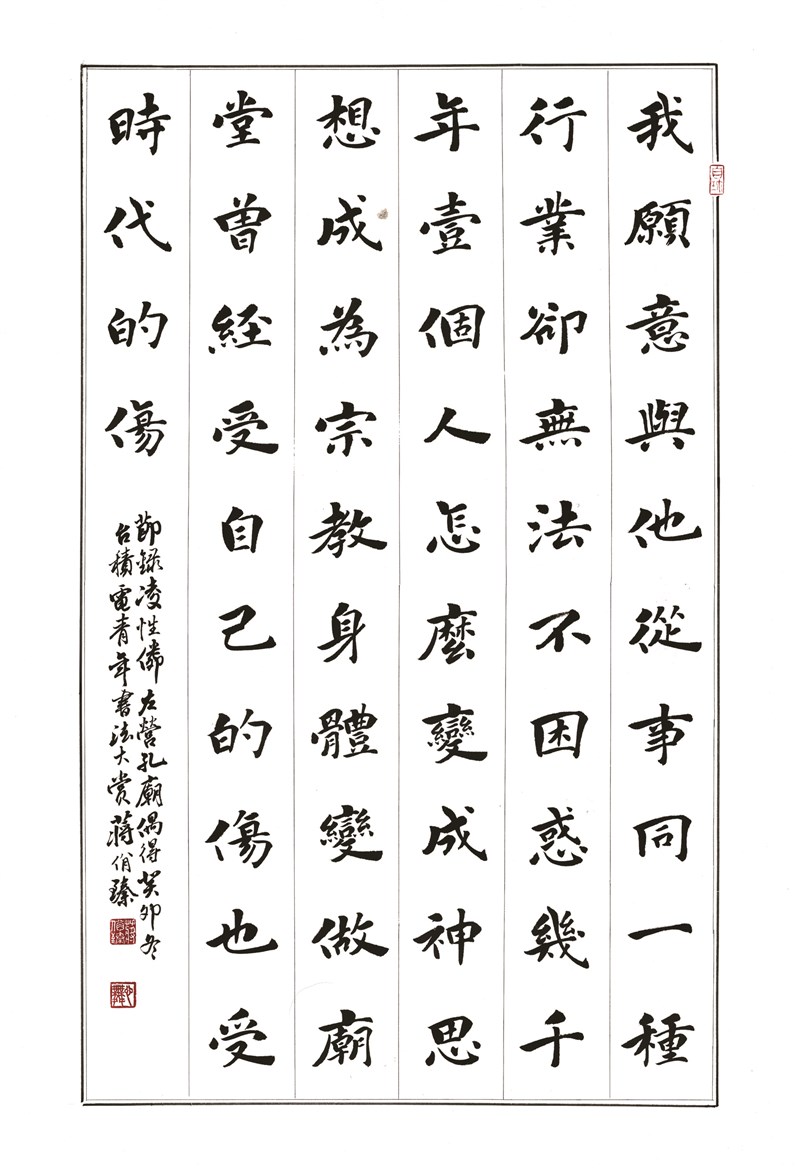 我願意與他從事同一種
行業卻無法不困惑幾千
年壹個人怎麼變成神思
想成為宗教身體變做廟
堂曾經受自己的傷也受
時代的傷
節錄凌性傑左營孔廟偶得癸卯冬
台積電青年書法大赏蔣佾臻